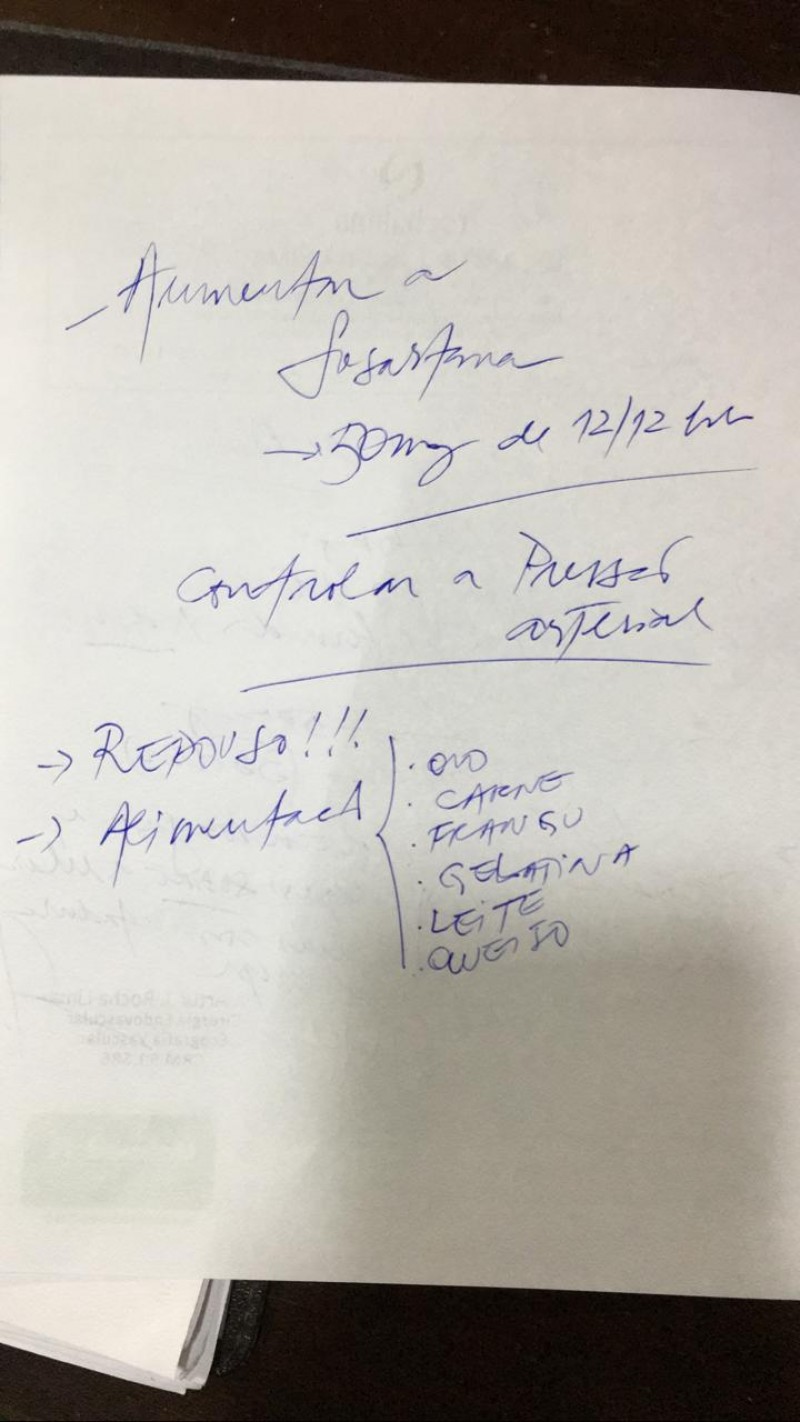 - Aumentar a
Losartana
→ 50mg de 12/12 hs
Controlar a Pressão
arterial
→ REPOUSO!!!
→ Alimentação
. OVO
. CARNE
. FRANGO
. GELATINA
. LEITE
. QUEIJO